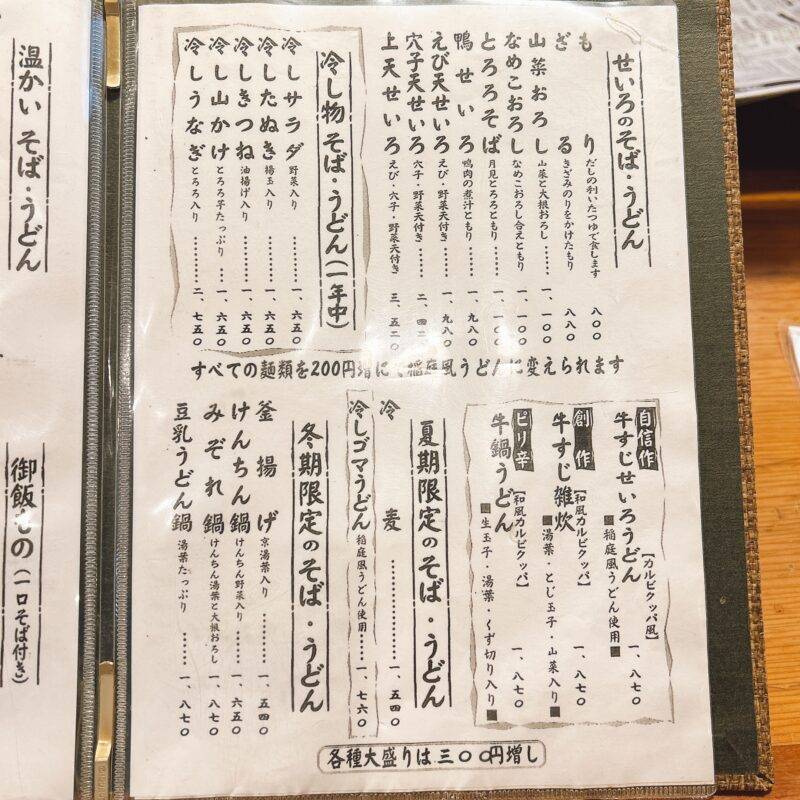 せいろのそば・うどん
もり だしの利いたつゆで食します 八〇〇
ざる きざみのりをかけたもり 八八〇
山菜おろし 山菜と大根おろし…… 一、一〇〇
なめこおろし なめこおろし合えともり 一、一〇〇
とろろそば 月見とろろともり…… 一、一〇〇
鴨せいろ 鴨肉の煮汁ともり…… 一、九八〇
えび天せいろ えび・野菜天付き…… 一、九八〇
穴子天せいろ 穴子・野菜天付き…… 二、四二〇
上天せいろ えび・穴子・野菜天付き 三、五二〇
冷し物 そば・うどん（一年中）
冷しサラダ 野菜入り……… 一、六五〇
冷したぬき 揚玉入り……… 一、六五〇
冷しきつね 油揚げ入り…… 一、六五〇
冷し山かけ とろろ芋たっぷり… 一、六五〇
冷しうなぎ とろろ入り……… 二、七五〇
すべての麺類を200円増にて稲庭風うどんに変えられます
自信作 牛すじせいろうどん 【カルビクッパ風】
■稲庭風うどん使用■ 一、八七〇
創作 牛すじ雑炊 【和風カルビクッパ】
■湯葉・とじ玉子・山菜入り■ 一、八七〇
ピリ辛 牛鍋うどん 【和風カルビクッパ】
■生玉子・湯葉・くず切り入り■ 一、八七〇
夏期限定のそば・うどん
冷麦 ……………… 一、五四〇
冷しゴマうどん 稲庭風うどん使用…… 一、七六〇
冬期限定のそば・うどん
釜揚げ 京湯葉入り……… 一、五四〇
けんちん鍋 けんちん野菜入り…… 一、六五〇
みぞれ鍋 けんちん湯葉と大根おろし 一、八七〇
豆乳うどん鍋 湯葉たっぷり…… 一、八七〇
各種大盛りは三〇〇円増し
温かい そば・うどん
御飯もの（一口そば付き）